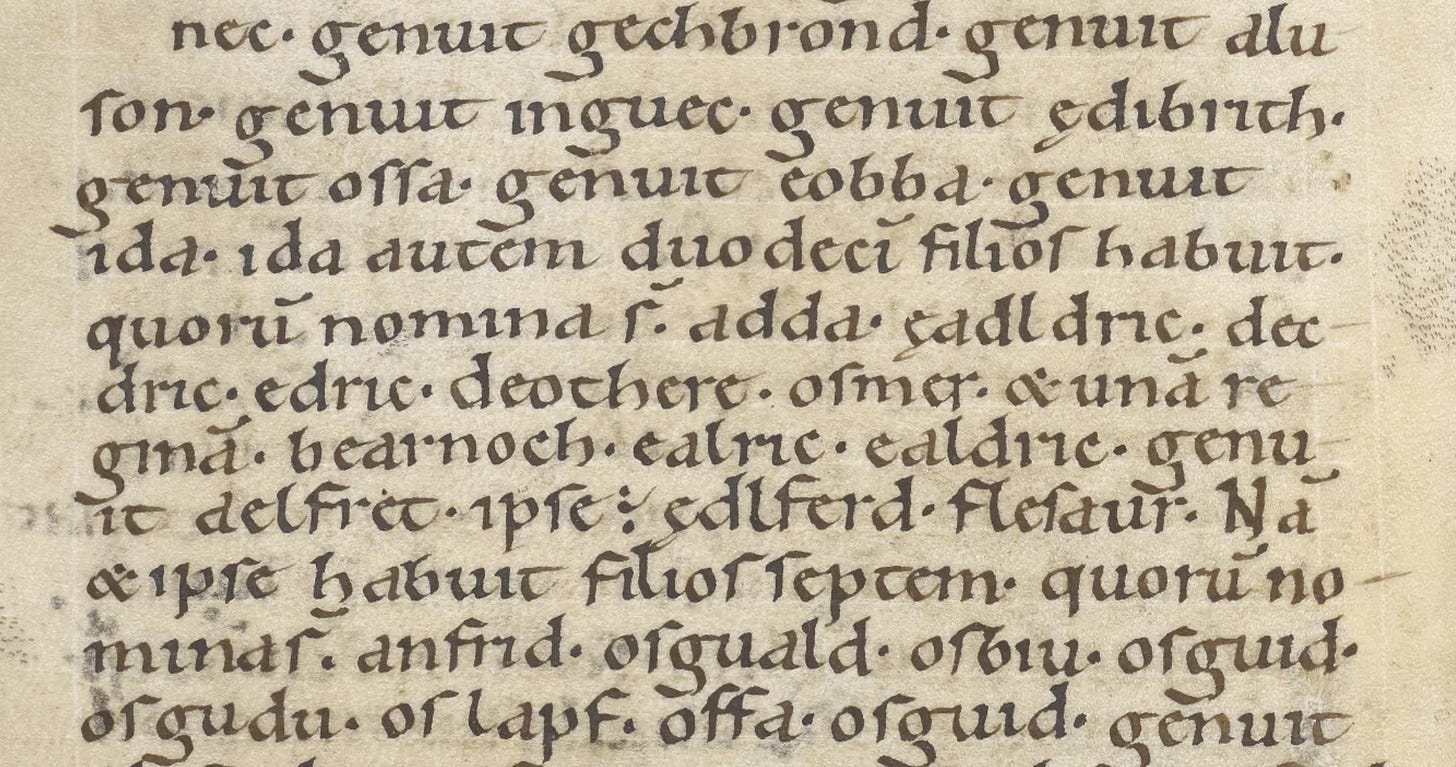 nec· genuit gechbrond· genuit alu
son· genuit inguec· genuit ędibrith·
genuit ossa· genuit eobba· genuit
ida· ida autem duodecī filios habuit·
quorū nomina s̄· adda· ęadldric· dec
dric· edric· deothere· osmer· & unā re
ginā· bearnoch· ealric· ealdric· genu
it aelfret· ipse ędlferd· flesaur· Nā
& ipse habuit filios septem· quorū no
mina s̄· anfrid· osguald· osbiu· osguid·
osgudu· oslapf· offa· osguid· genuit